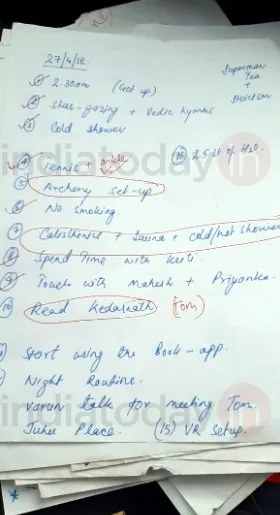 27/4/18
Superman
Tea
+
① 2.30am (Get up)
② Star-gazing + Vedic hymns.
③ Cold shower
④ Tennis + ankle
(16) 2.5 lt of H₂O.
⑤ Archery set-up
⑥ No smoking.
⑦ Calisthenic + Sauna + Cold/hot shower
⑧ Spend Time with
⑨ Touch with Mahesh + Priyanka.
⑩ Read Kedarnath (Tom)
Start using the Book-app.
Night Routine.
Varun talk for meeting Tom.
Juhu Place. (15) VR Setup.
indiatoday.in
indiatoday.in
indiatoday